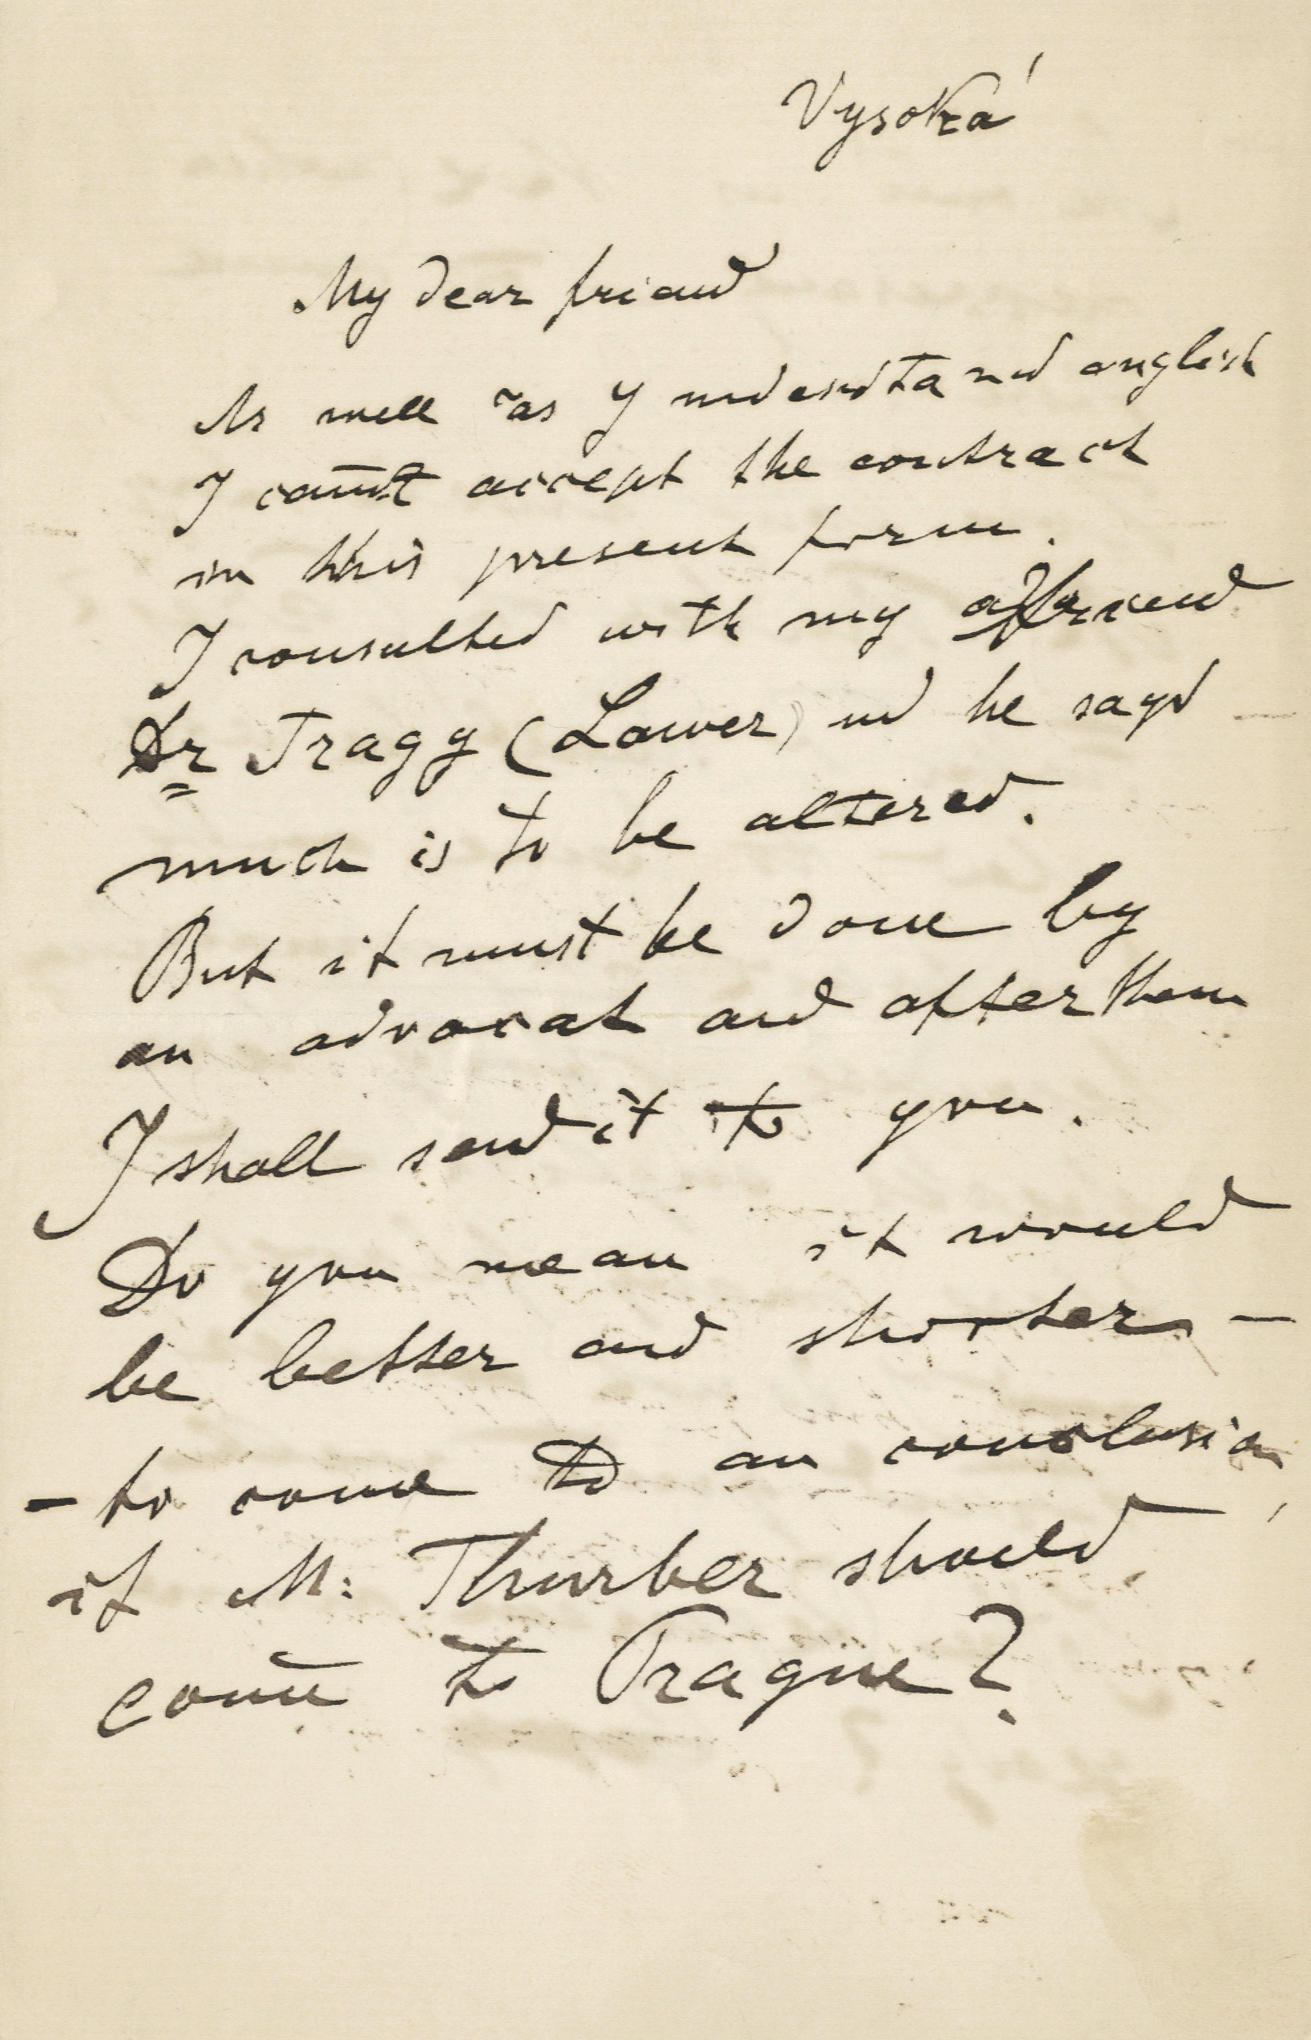 Vysoká
My dear friend
As well as I understand english
I cannot accept the contract
in this present form.
I consulted with my friend
Dr Tragy (Lawer) and he says
much is to be altered.
But it must be done by
an advocat and after them
I shall send it to you.
Do you mean it would
be better and shorter –
– to come to an conclusion,
if M: Thurber should
come to Prague?